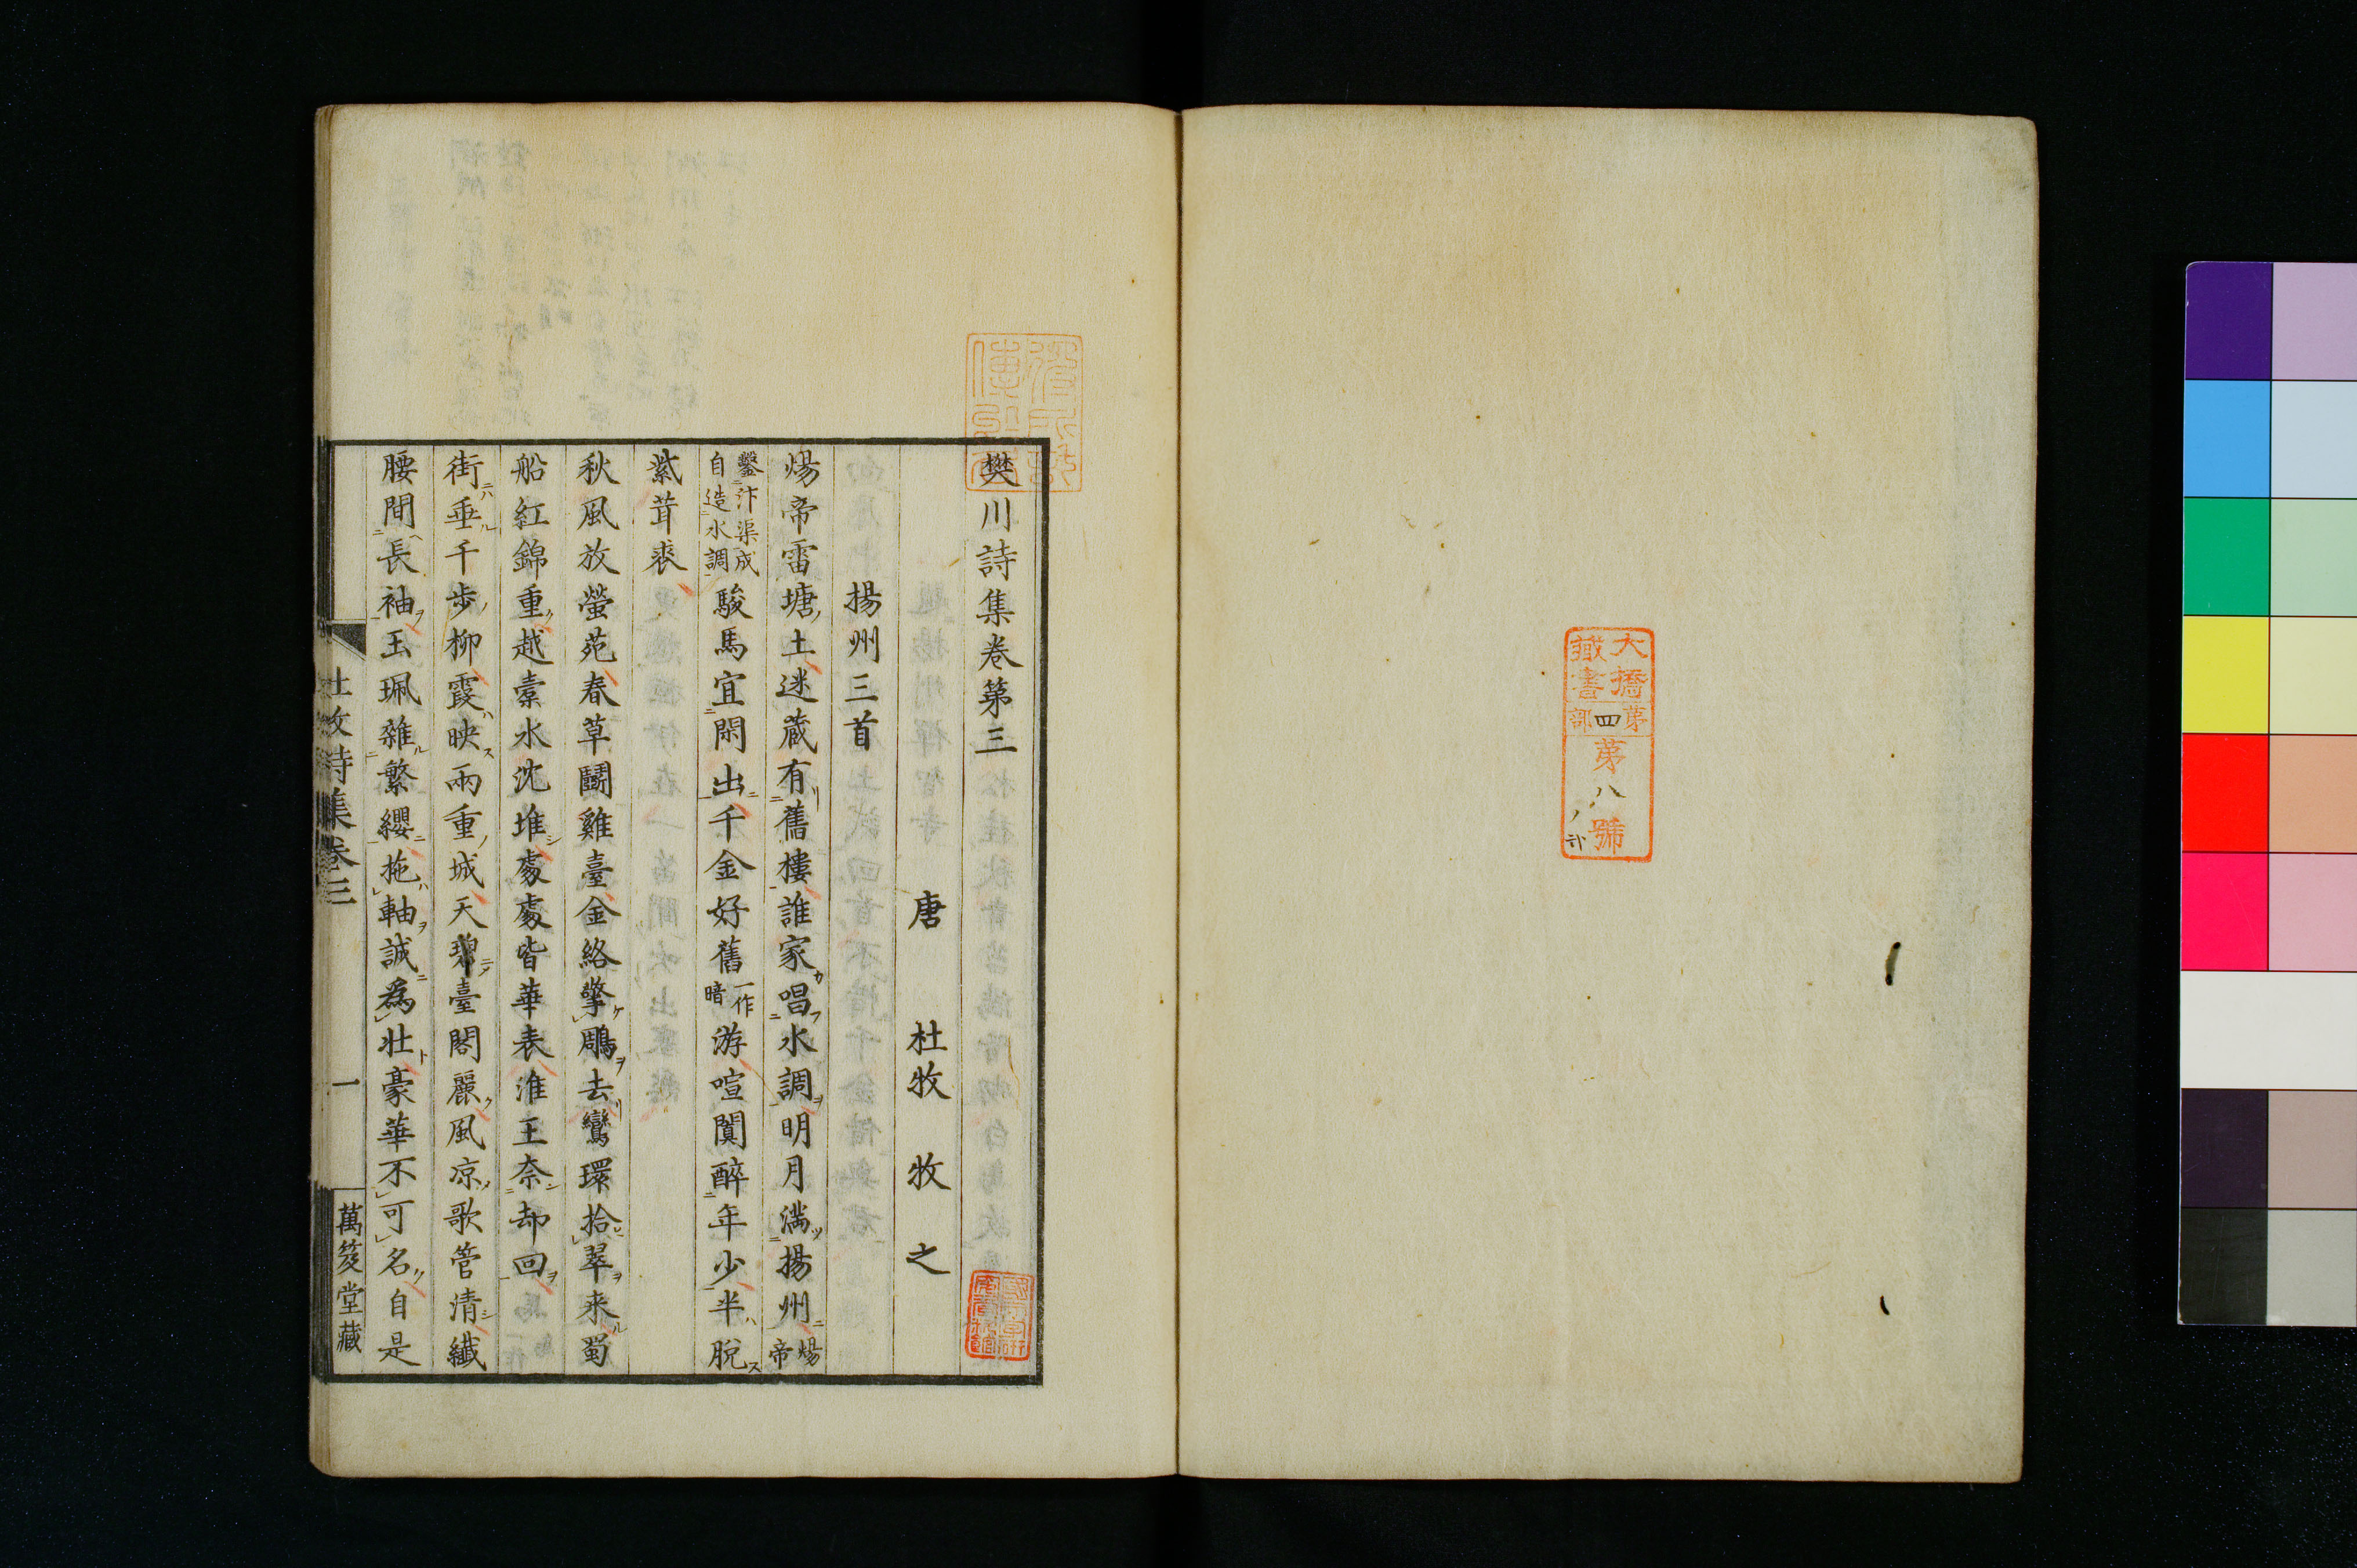 大橋
藏書
第四部
第八號
ノ弐
樊川詩集卷第三
唐 杜牧 牧之
揚州三首
煬帝雷塘土迷蔵有舊樓誰家唱水調明月満揚州煬帝
鑿汴渠成自造水調駿馬宜閑出千金好舊一作暗游喧闐醉年少半脫
紫茸裘
秋風放螢苑春草鬬雞臺金絡擎鵰去鸞環拾翠来蜀
船紅錦重越橐水沈堆處處皆華表淮王奈却回
街垂千步柳霞映兩重城天碧臺閣麗風凉歌管清纖
腰間長袖玉珮雜繁纓拖軸誠為壯豪華不可名自是
杜牧詩集卷三
一
萬笈堂藏